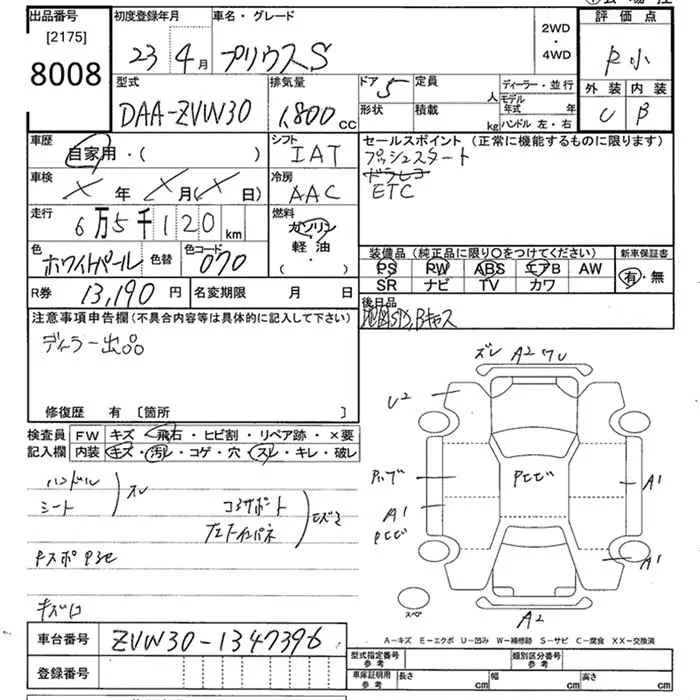 出品番号
[2175]
8008
初度登録年月
23 4月
車名・グレード
プリウスS
2WD
・
4WD
評価点
外装 内装
U B
型式
DAA-ZVW30
排気量
1,800cc
ドア 5
定員 人
形状
積載 kg
ディーラー・並行
モデル年式 年
ハンドル 左・右
車歴
自家用・( )
シフト
IAT
セールスポイント (正常に機能するものに限ります)
プッシュスタート
ETC
車検
X 年 X 月(X 日)
冷房
AAC
走行
6万5千120km
燃料
ガソリン
軽油
・( )
色
ホワイトパール
色替
色コード
070
装備品 (純正品に限り○をつけてください)
PS PW ABS エアB AW
SR ナビ TV カワ
新車保証書
有・無
R券 13,190円
名変期限 月 日
後日品
注意事項申告欄 (不具合内容等は具体的に記入して下さい)
ディラー出品
修復歴 有 [箇所 ]
検査員記入欄
FW キズ・飛石・ヒビ割・リペア跡・×要
内装 キズ・汚レ・コゲ・穴・スレ・キレ・破レ
ハンドル
シート
スレ
コアサポート
キズロ
ズレ A2 ワレ
U2
A1
A1
A1
A2
スペア
A-キズ E-エクボ U-凹み W-補修跡 S-サビ C-腐食 XX-交換済
車台番号 ZVW30-1347396
登録番号
型式指定番号 参考
類別区分番号 参考
車庫証明用 参考
長さ cm
幅 cm
高さ cm